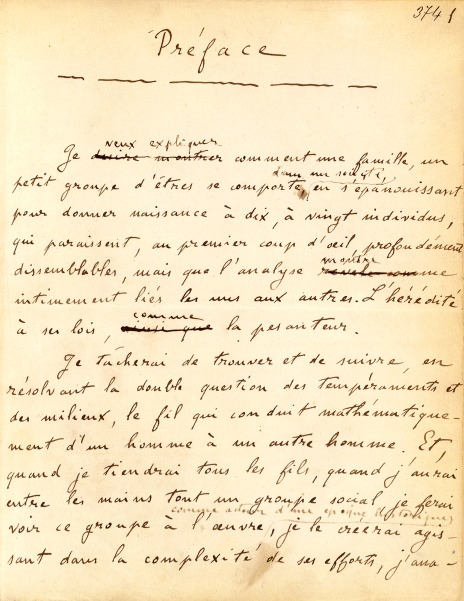 374 1
Préface
veux expliquer
Je désire montrer comment une famille, un
dans une société,
petit groupe d'êtres se comporte, en s'épanouissant
pour donner naissance à dix, à vingt individus,
qui paraissent, au premier coup d'œil, profondément
montre
dissemblables, mais que l'analyse révèle comme
intimement liés les uns aux autres. L'hérédité
comme
à ses lois, ainsi que la pesanteur.
Je tâcherai de trouver et de suivre, en
résolvant la double question des tempéraments et
des milieux, le fil qui conduit mathématique-
ment d'un homme à un autre homme. Et,
quand je tiendrai tous les fils, quand j'aurai
entre les mains tout un groupe social, je ferai
comme acteur d'une époque historique,
voir ce groupe à l'œuvre, je le créerai agis-
sant dans la complexité de ses efforts, j'ana-